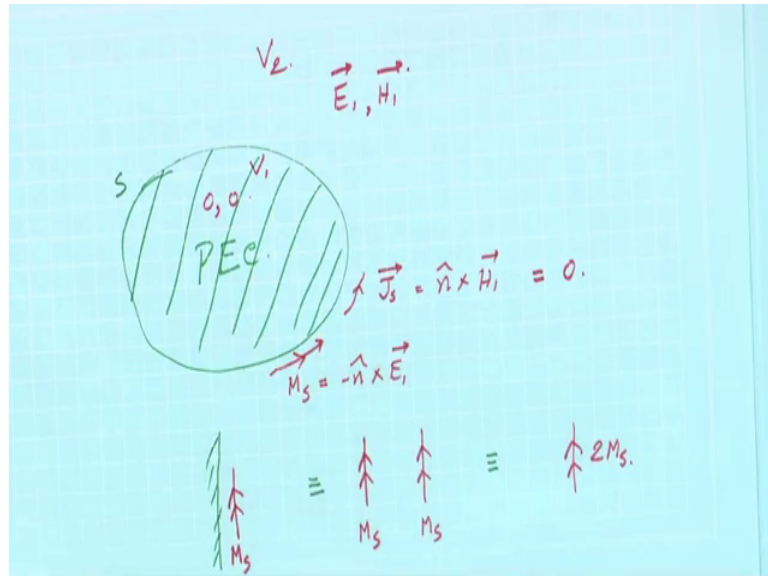 V₂.
E⃗₁, H⃗₁.
S
V₁
0, 0.
PEC.
J⃗ₛ = n̂ × H⃗₁ = 0.
M⃗ₛ = -n̂ × E⃗₁
≡ ≡ 2Mₛ.
Mₛ Mₛ Mₛ